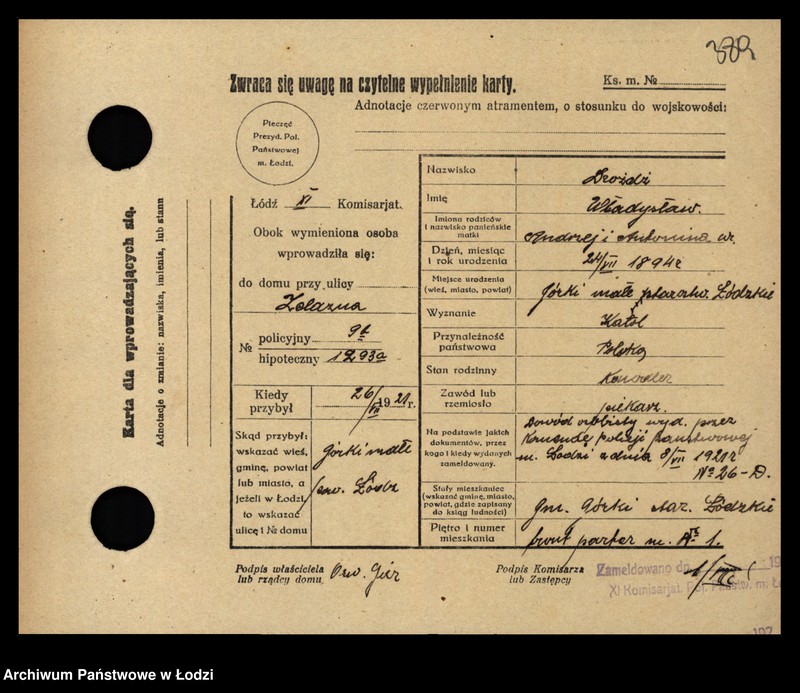 389
Zwraca się uwagę na czytelne wypełnienie karty.
Ks. m. №
Adnotacje czerwonym atramentem, o stosunku do wojskowości:
Pieczęć
Prezyd. Pol.
Państwowej
m. Łodzi.
Karta dla wprowadzających się.
Adnotacje o zmianie: nazwiska, imienia, lub stanu
Łódź XI Komisarjat.
Obok wymieniona osoba
wprowadziła się:
do domu przy ulicy
Żelazna
№ policyjny 9b
hipoteczny 1293a
Kiedy przybył 26/VII 1921 r.
Skąd przybył: wskazać wieś, gminę, powiat lub miasto, a jeżeli w Łodzi, to wskazać ulicę i № domu
Górki małe
pow. Łódź
Nazwisko Drożdż
Imię Władysław.
Imiona rodziców i nazwisko panieńskie matki Andrzej i Antonina
Dzień, miesiąc i rok urodzenia 24/VII 1894 r
Miejsce urodzenia (wieś, miasto, powiat) Górki małe starostw. Łódzkie
Wyznanie Katol
Przynależność państwowa Polską
Stan rodzinny Kawaler
Zawód lub rzemiosło piekarz.
Na podstawie jakich dokumentów, przez kogo i kiedy wydanych zameldowany.
Dowód osobisty wyd. przez
Komendę Policji państwowej
m. Łodzi z dnia 8/VII 1921 r
№ 26-D.
Stały mieszkaniec (wskazać gminę, miasto, powiat, gdzie zapisany do ksiąg ludności) gm. Górki star. Łódzkie
Piętro i numer mieszkania front parter m. № 1.
Podpis właściciela
lub rządcy domu.
Podpis Komisarza
lub Zastępcy
Zameldowano dn. 1/VIII 19
XI Komisarjat. Pol. Państw. m. Ło
192
Archiwum Państwowe w Łodzi